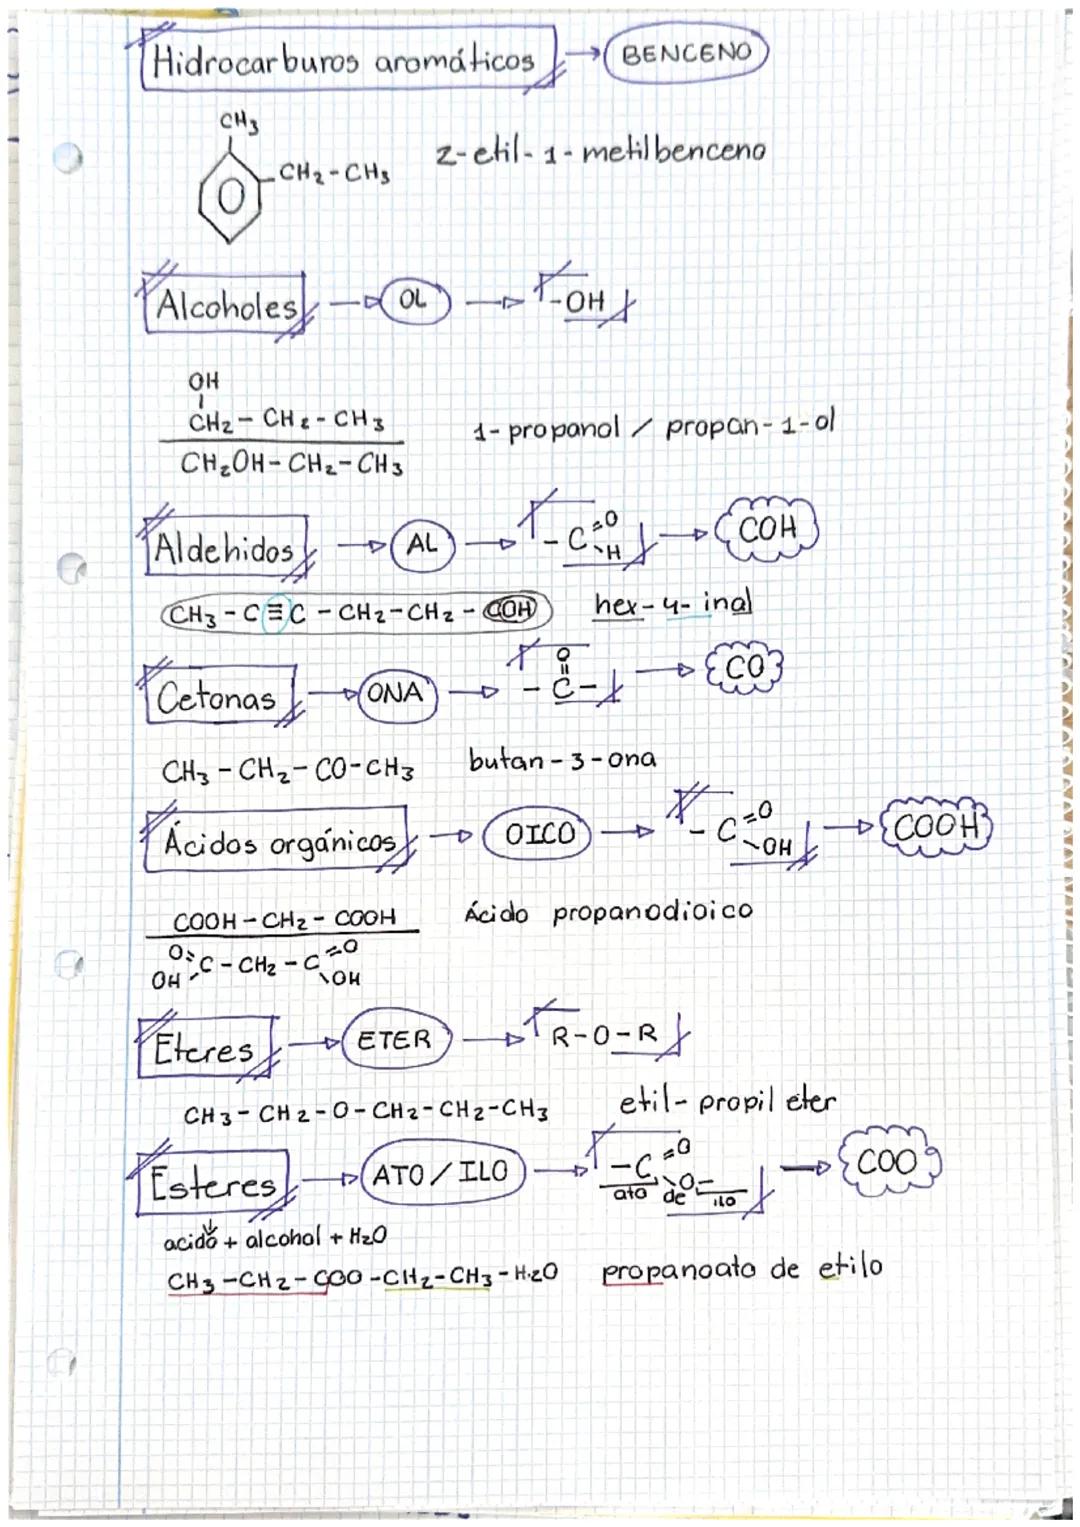 Hidrocarburos aromáticos → BENCENO
CH3
-CH2-CH3
2-etil-1-metilbenceno
Alcoholes → OL → -OH
OH
CH2-CH2-CH3
1-propanol / propan-1-ol
CH2OH-CH2-CH3
Aldehidos → AL → -C=O -H → COH
CH3-C≡C-CH2-CH2-COH hex-4-inal
Cetonas → ONA → O=-C- → CO
CH3-CH2-CO-CH3 butan-3-ona
Ácidos orgánicos → OICO → -C=O -OH → COOH
COOH-CH2-COOH Ácido propanodioico
O= OH-C-CH2-C=O -OH
Eteres → ETER → R-O-R
CH3-CH2-O-CH2-CH2-CH3 etil-propil eter
Esteres → ATO/ILO → -C=O -O- → COO
ato de ilo
acido + alcohol + H2O
CH3-CH2-COO-CH2-CH3-H2O propanoato de etilo